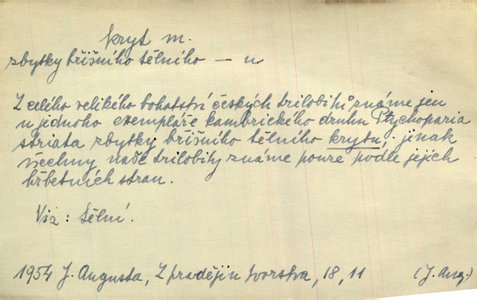 kryt m.
zbytky břišního tělního — u
Z celého velikého bohatství českých trilobitů známe jen
u jednoho exempláře kambrického druhu Ptychoparia
striata zbytky břišního tělního krytu; jinak
všechny naše trilobity známe pouze podle jejich
hřbetních stran.
Viz: tělní.
1954 J. Augusta, Z pradějin tvorstva, 18, 11 (J. Aug.)